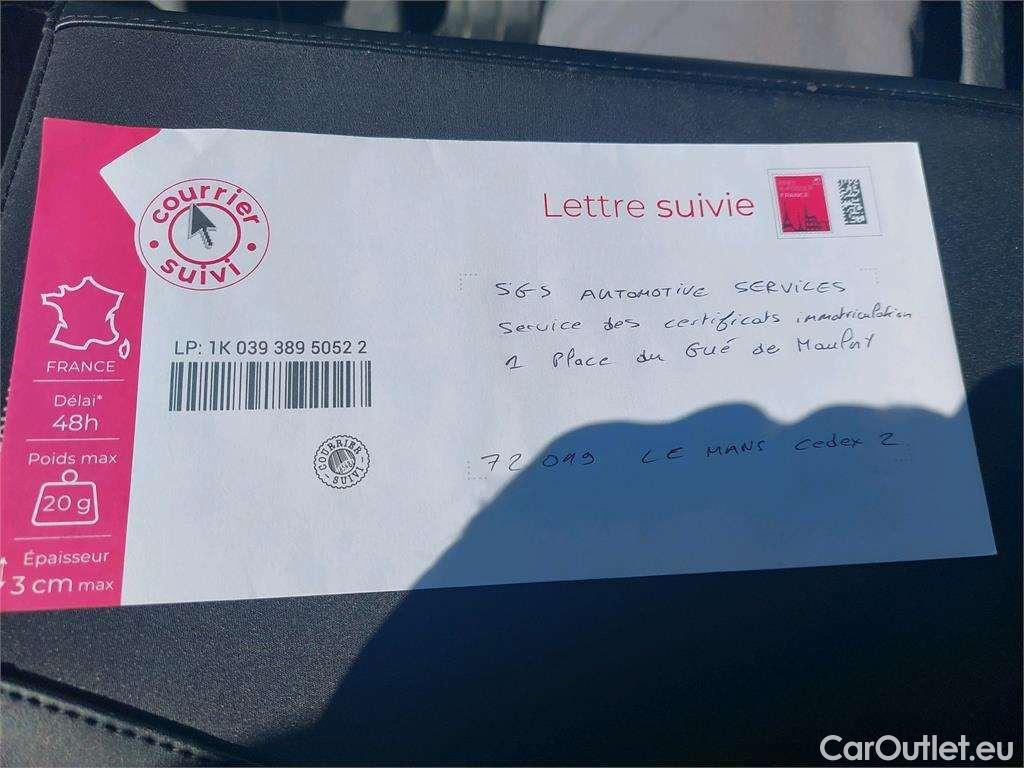 courrier
suivi
Lettre suivie
FRANCE
SGS AUTOMOTIVE SERVICES
Service des certificats immatriculation
1 Place du Gué de Maulny
72 019 LE MANS Cedex 2
LP: 1K 039 389 5052 2
COURRIER
SUIVI
FRANCE
Délai*
48h
Poids max
20 g
Épaisseur
3 cm max
CarOutlet.eu